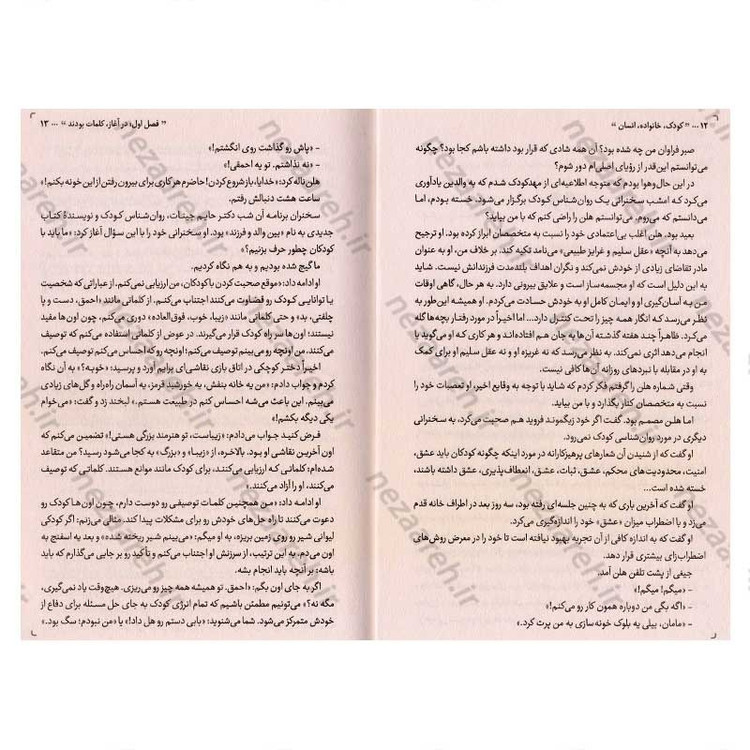 ۱۲ ... " کودک، خانواده، انسان "
صبر فراوان من چه شده بود؟ آن همه شادی که قرار بود داشته باشم کجا بود؟ چگونه
می‌توانستم این‌قدر از رؤیای اصلی‌ام دور شوم؟
در این حال‌وهوا بودم که متوجه اطلاعیه‌ای از مهدکودک شدم که به والدین یادآوری
می‌کرد که امشب سخنرانی یک روان‌شناس کودک برگزار می‌شود. خسته بودم، اما
می‌دانستم که می‌روم. می‌توانستم هلن را راضی کنم که با من بیاید؟
بعید بود. هلن اغلب بی‌اعتمادی خود را نسبت به متخصصان ابراز کرده بود. او ترجیح
می‌دهد به آنچه «عقل سلیم و غرایز طبیعی» می‌نامد تکیه کند. بر خلاف من، او به عنوان
مادر تقاضای زیادی از خودش نمی‌کند و نگران اهداف بلندمدت فرزندانش نیست. شاید
به این دلیل است که او مجسمه‌ساز است و علایق بیرونی دارد. به هر حال، گاهی اوقات
من به آسان‌گیری او و ایمان کامل او به خودش حسادت می‌کردم. او همیشه این‌طور به
نظر می‌رسد که انگار همه چیز را تحت کنترل دارد... اما اخیراً در مورد رفتار بچه‌ها گله
می‌کرد. ظاهراً چند هفته گذشته آن‌ها به جان هم افتاده‌اند و هر کاری که او می‌گوید یا
انجام می‌دهد اثری نمی‌کند. به نظر می‌رسد که نه غریزه او و نه عقل سلیم او برای کمک
به او در مقابله با نبردهای روزانه آن‌ها کافی نیست.
وقتی شماره هلن را گرفتم فکر کردم که شاید با توجه به وقایع اخیر، او تعصبات خود را
نسبت به متخصصان کنار بگذارد و با من بیاید.
اما هلن مصمم بود. گفت اگر خود زیگموند فروید هم صحبت می‌کرد، به سخنرانی
دیگری در مورد روان‌شناسی کودک نمی‌رود.
او گفت که از شنیدن آن شعارهای پرهیزکارانه در مورد اینکه چگونه کودکان باید عشق،
امنیت، محدودیت‌های محکم، عشق، ثبات، عشق، انعطاف‌پذیری، عشق داشته باشند،
خسته شده است...
او گفت که آخرین باری که به چنین جلسه‌ای رفته بود، سه روز بعد در اطراف خانه قدم
می‌زد و با اضطراب میزان «عشق» خود را اندازه‌گیری می‌کرد.
او گفت که به اندازه کافی از آن تجربه بهبود نیافته است تا خود را در معرض روش‌های
اضطراب‌زای بیشتری قرار دهد.
جیغی از پشت تلفن هلن آمد.
- «میگم! میگم!»
- «اگه بگی من دوباره همون کار رو می‌کنم!»
- «مامان، بیلی یه بلوک خونه‌سازی به من پرت کرد.»
" فصل اول؛ در آغاز، کلمات بودند " ... ۱۳
- «پاش رو گذاشت روی انگشتم!»
- «نه نذاشتم. تو یه احمقی!»
هلن ناله کرد: «خدایا، باز شروع کردن! حاضرم هر کاری برای بیرون رفتن از این خونه بکنم!»
ساعت هشت دنبالش رفتم.
سخنران برنامه آن شب دکتر حایم جینات، روان‌شناس کودک و نویسندهٔ کتاب
جدیدی به نام «بین والد و فرزند» بود. او سخنرانی خود را با این سؤال آغاز کرد: «ما باید با
کودکان چطور حرف بزنیم؟»
ما گیج شده بودیم و به هم نگاه کردیم.
او ادامه داد: «موقع صحبت کردن با کودکان، من ارزیابی نمی‌کنم. از عباراتی که شخصیت
یا توانایی کودک رو قضاوت می‌کنند اجتناب می‌کنم. از کلماتی مانند «احمق، دست و پا
چلفتی، بد» و حتی کلماتی مانند «زیبا، خوب، فوق‌العاده» دوری می‌کنم، چون اون‌ها مفید
نیستند؛ اون‌ها سر راه کودک قرار می‌گیرند. در عوض از کلماتی استفاده می‌کنم که توصیف
می‌کنند. من اونچه رو می‌بینم توصیف می‌کنم؛ اونچه رو که احساس می‌کنم توصیف می‌کنم.
اخیراً دختر کوچکی در اتاق بازی نقاشی‌ای برایم آورد و پرسید: «خوبه؟» به آن نگاه
کردم و جواب دادم: «من یه خانه بنفش، یه خورشید قرمز، یه آسمان راه‌راه و گل‌های زیادی
می‌بینم. این باعث می‌شه احساس کنم در طبیعت هستم.» لبخند زد و گفت: «می‌خوام
یکی دیگه بکشم!»
فرض کنید جواب می‌دادم: «زیباست، تو هنرمند بزرگی هستی!» تضمین می‌کنم که
اون آخرین نقاشی او بود. بالاخره، از «زیبا» و «بزرگ» به کجا می‌شود رسید؟ من متقاعد
شده‌ام؛ کلماتی که ارزیابی می‌کنند، برای کودک مانند موانع هستند. کلماتی که توصیف
می‌کنند، او را آزاد می‌کنند.»
او ادامه داد: «من همچنین کلمات توصیفی رو دوست دارم، چون اون‌ها کودک رو
دعوت می‌کنند تا راه حل‌های خودش رو برای مشکلات پیدا کند. مثالی می‌زنم: اگر کودکی
لیوانی شیر رو روی زمین بریزه، به او میگم: «می‌بینم شیر ریخته شده» و بعد یه اسفنج به
اون می‌دم. به این ترتیب، از سرزنش او اجتناب می‌کنم و تأکید رو بر جایی می‌گذارم که باید
باشه؛ بر آنچه باید انجام بشه.
اگر به جای اون بگم: «احمق. تو همیشه همه چیز رو می‌ریزی. هیچ‌وقت یاد نمی‌گیری،
مگه نه؟» می‌تونیم مطمئن باشیم که تمام انرژی کودک به جای حل مسئله برای دفاع از
خودش متمرکز می‌شود. شما می‌شنوید: «بابی دستم رو هل داد!» یا «من نبودم؛ سگ بود.»
nezaareh.ir